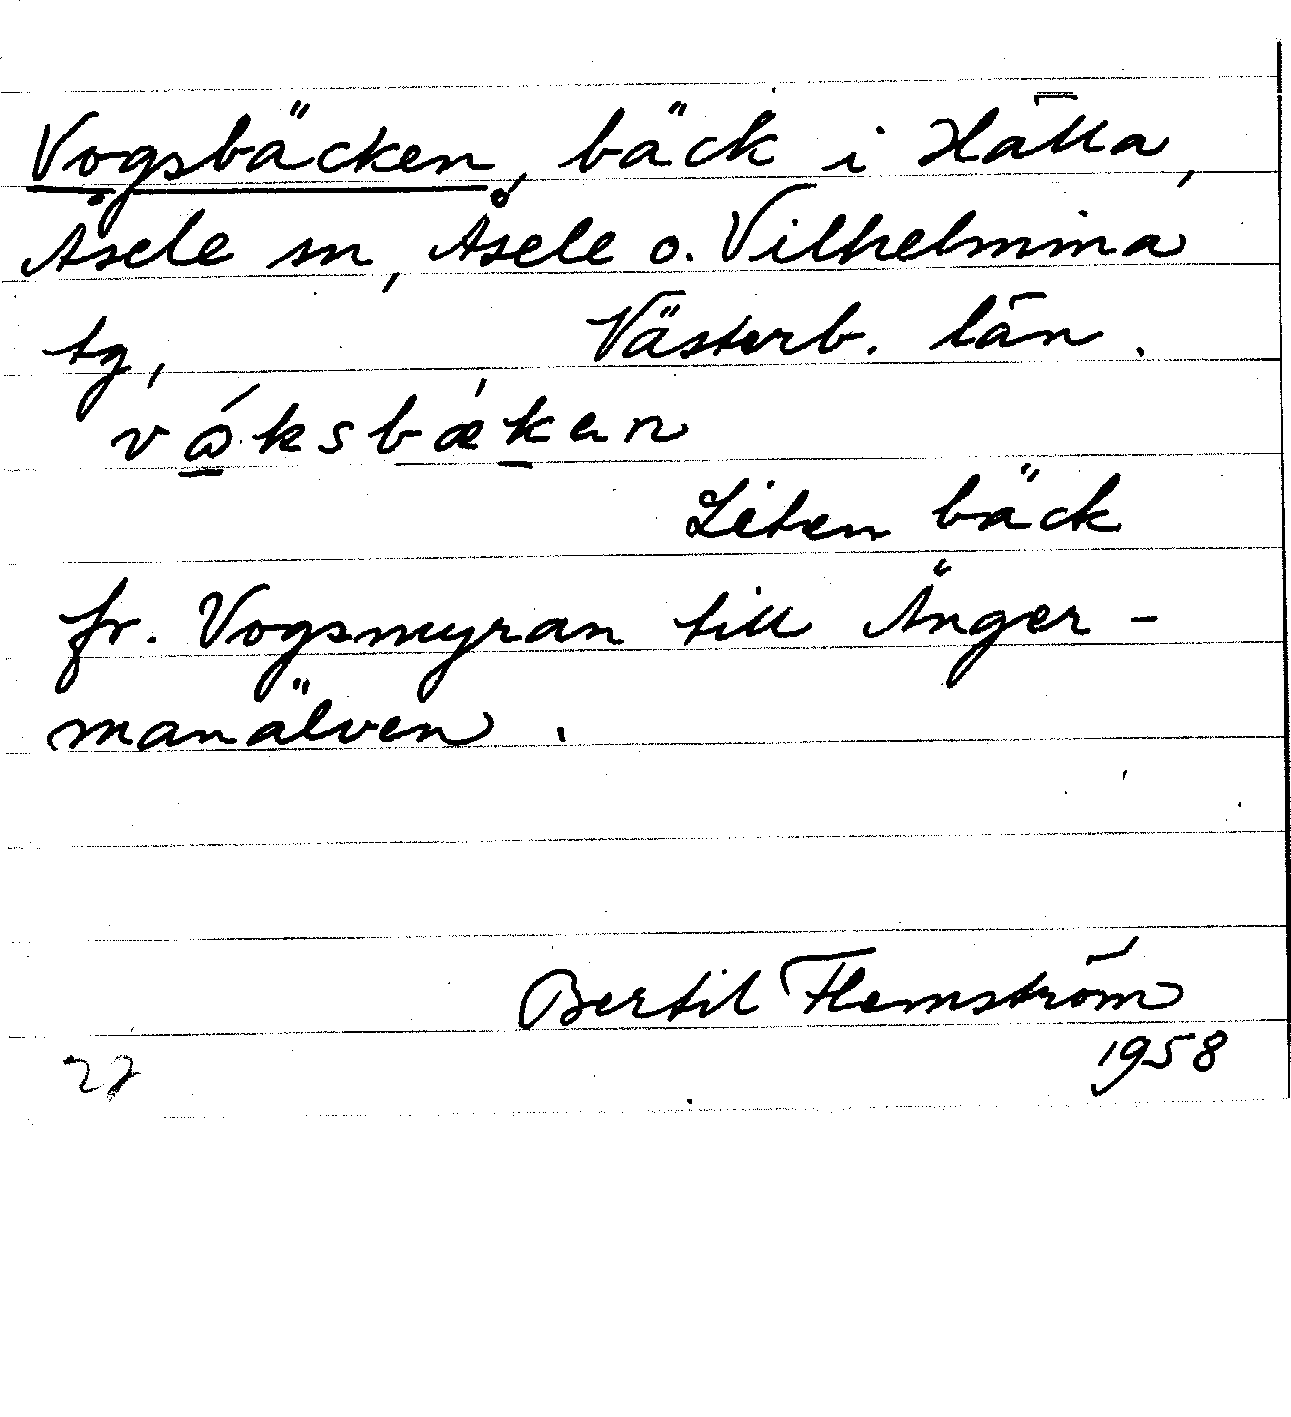 Vogsbäcken, bäck i Hälla,
Åsele sn, Åsele o. Vilhelmina
tg, Västerb. län.
Liten bäck
fr. Vogsmyran till Ånger-
manälven.
Bertil Flemström
1958
27